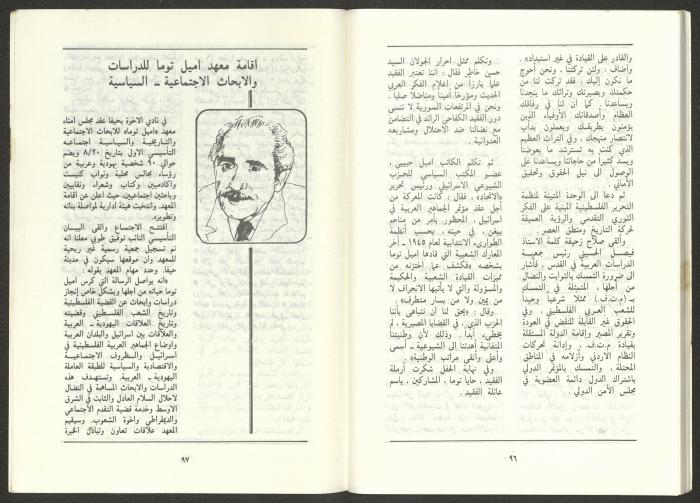 والقادر على القيادة في غير استبداد» .
وأضاف : ولئن تركتنا ، ونحن أحوج
ما نكون إليك ، فقد تركت لنا من
حكمتك وبصيرتك وتراثك ما ينجدنا
ويساعدنا . كما أن لنا في رفاقك
العظام وأصدقائك الأوفياء الذين
يؤمنون بطريقك ويعملون بدأب
لانتصار منهجك ، وفي التراث العظيم
الذي كنت به تسترشد ما يعوضنا
ويسد كثيرا من حاجاتنا ويساعدنا على
الوصول الى نيل الحقوق وتحقيق
الأماني .
ثم دعا الى الوحدة المتينة لمنظمة
التحرير الفلسطينية المبنية على الفكر
الثوري التقدمي والرؤية العميقة
لحركة التاريخ ومنطق العصر .
وألقى صلاح زحيقة كلمة الاستاذ
فيصل الحسيني رئيس جمعية
الدراسات العربية في القدس ، فأشار
الى ضرورة التمسك بالثوابت والنضال
من أجلها ، المتمثلة في التمسك
بـ (م.ت.ف.) ممثلا شرعيا وحيدا
للشعب العربي الفلسطيني ، وفي
الحقوق غير القابلة للنقض في العودة
وتقرير المصير وإقامة الدولة المستقلة
بقيادة م.ت.ف. ، وإدانة تحركات
النظام الاردني وأزلامه في المناطق
المحتلة ، والتمسك بالمؤتمر الدولي
باشتراك الدول دائمة العضوية في
مجلس الأمن الدولي .
وتكلم ممثل احرار الجولان السيد
حسين خاطر فقال : اننا نعتبر الفقيد
علما بارزا من أعلام الفكر العربي
الحديث ومؤرخا أمينا ومناضلا صلبا .
ونحن في المرتفعات السورية لا ننسى
دور الفقيد الكفاحي الرائد في التضامن
مع نضالنا ضد الاحتلال ومشاريعه
العدوانية .
ثم تكلم الكاتب اميل حبيبي ،
عضو المكتب السياسي للحزب
الشيوعي الاسرائيلي ورئيس تحرير
«الاتحاد» ، فقال : كانت المعركة من
أجل عقد مؤتمر الجماهير العربية في
اسرائيل ، المحظور بأمر من مناحم
بيغن ، في حينه ، بحسب أنظمة
الطوارىء الانتدابية لعام ١٩٤٥ ـ آخر
المعارك الشعبية التي قادها اميل توما
بشخصه «فكشف عما اختزنه من
مميزات القيادة الشعبية والحكيمة
والمسؤولة والتي لا يأتيها الانحراف لا
من يمين ولا من يسار متطرف» .
وقال : «يحق لنا أن نتباهى بأننا
الحزب الذي ، في القضايا المصيرية ، لم
يخطىء أبدا . وذلك لأن وطنيتنا
المتفانية أهدتنا إلى الشيوعية ـ أسمى
وأعلى وأنقى مراتب الوطنية» .
وفي نهاية الحفل شكرت أرملة
الفقيد ، حايا توما ، المشاركين ، باسم
عائلة الفقيد .
٩٦
اقامة معهد اميل توما للدراسات
والابحاث الاجتماعية ـ السياسية
في نادي الاخوة بحيفا عقد مجلس أمناء
معهد «اميل توما» للابحاث الاجتماعية
والتاريخية والسياسية اجتماعه
التأسيسي الأول بتاريخ ٨/٢٠ ويضم
حوالي ٩٠ شخصية يهودية وعربية من
رؤساء مجالس محلية ونواب كنيست
واكاديميين وكتاب وشعراء ونقابيين
وباحثين اجتماعيين، حيث أعلن عن اقامة
المعهد وانتخبت هيئة ادارية لمواصلة بنائه
وتطويره.
افتتح الاجتماع والقى البيان
التأسيسي النائب توفيق طوبي معلنا انه
تم تسجيل جمعية رسمية غير ربحية
للمعهد وان موقعها سيكون في مدينة
حيفا. وحدد مهام المعهد بقوله :
«انه يواصل الرسالة التي كرس اميل
توما حياته من اجلها وبشكل خاص إنجاز
دراسات وابحاث عن القضية الفلسطينية
وتاريخ الشعب الفلسطيني وقضيته
وتاريخ العلاقات اليهودية ـ العربية
والعلاقات بين اسرائيل والبلدان العربية
واوضاع الجماهير العربية الفلسطينية في
اسرائيل والظروف الاجتماعية
والاقتصادية والسياسية للطبقة العاملة
اليهودية ـ العربية. وتستهدف هذه
الدراسات والابحاث المساهمة في النضال
لاحلال السلام العادل والثابت في الشرق
الاوسط وخدمة قضية التقدم الاجتماعي
والديمقراطي واخوة الشعوب. وسيقيم
المعهد علاقات تعاون وتبادل الخبرة
٩٧